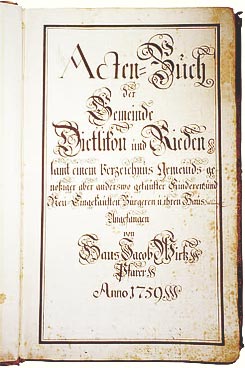 Acten-Buch
der
Gemeinde
Dietlikon und Rieden
samt einem Verzeichnis Gemeinds-ge
nößiger aber anderswo getauffter Kinderen und
Neu-Eingekaufften Burgeren u. ihren Haus
Angefangen
von
Hans Jacob Wirtz
Pfarer
Anno 1759